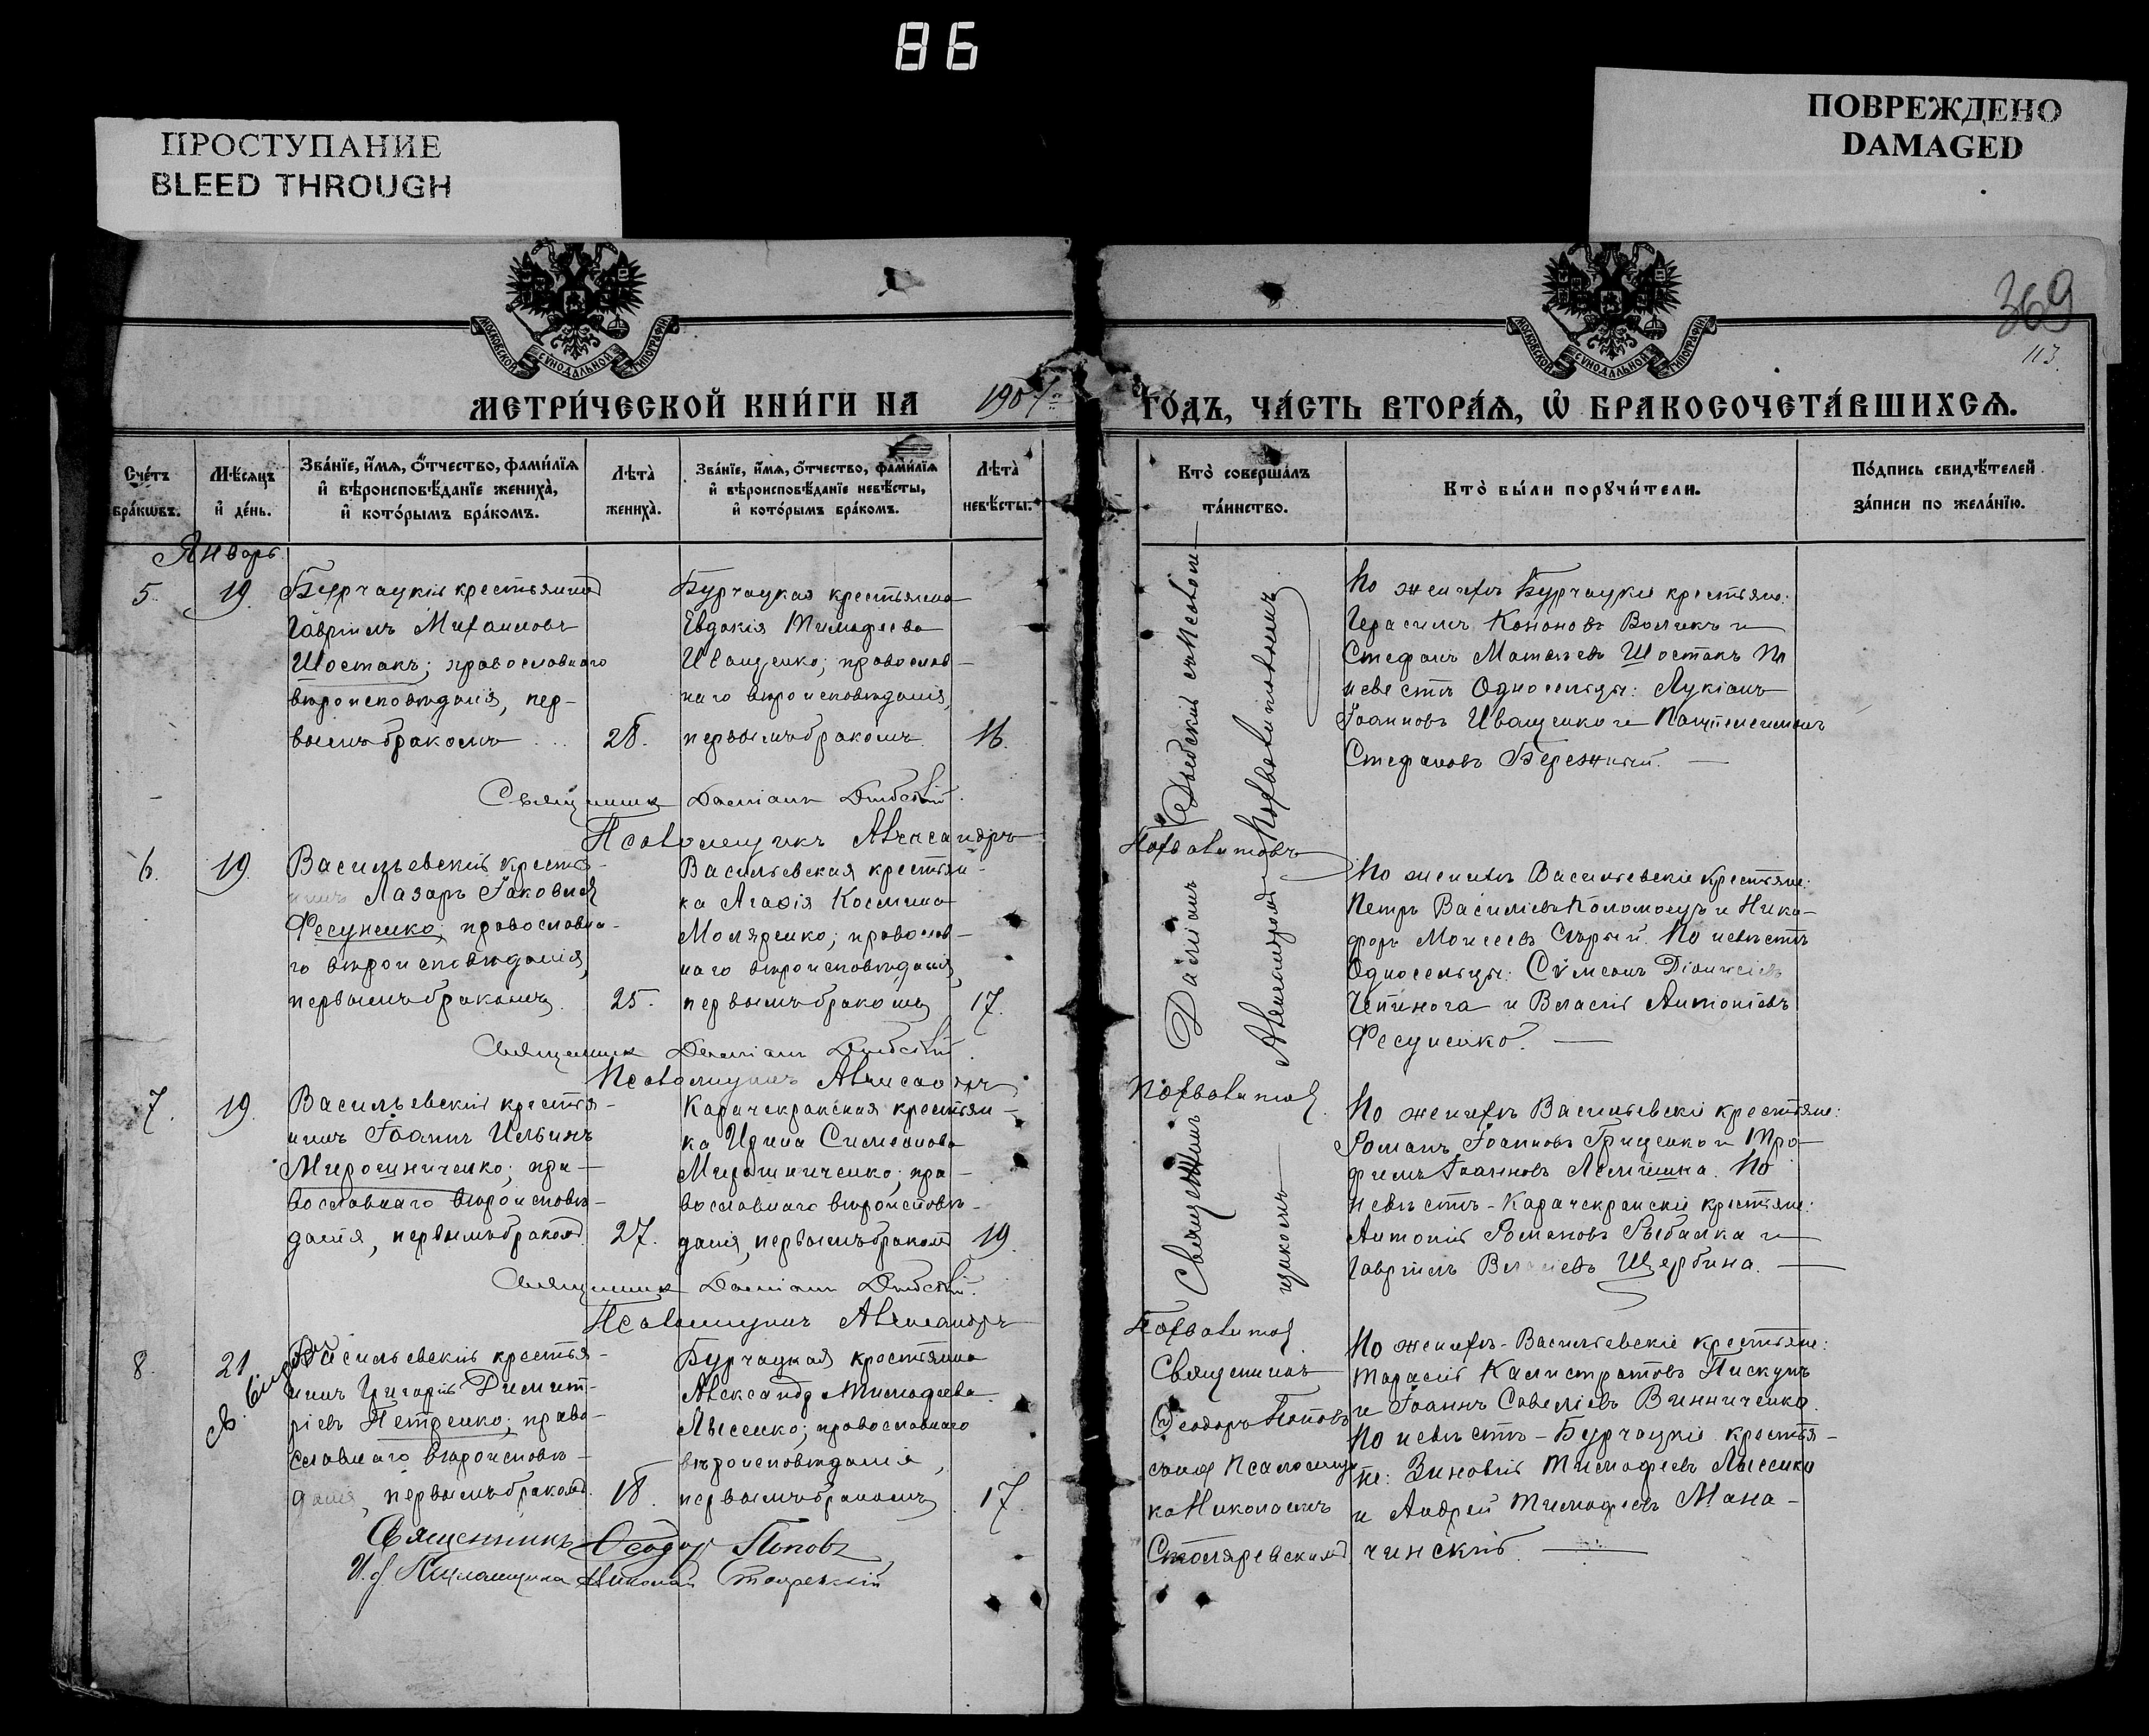 86
ПРОСТУПАНИЕ
BLEED THROUGH
ПОВРЕЖДЕНО
DAMAGED
369
113
МОСКОВСКОЙ СУНОДАЛЬНОЙ ТИПОГРАФІИ
МОСКОВСКОЙ СУНОДАЛЬНОЙ ТИПОГРАФІИ
МЕТРИ́ЧЕСКОЙ КНИ́ГИ НА 190 ГО́ДЪ, ЧА́СТЬ ВТОРА́Ѧ, Ѽ БРАКОСОЧЕТА́ВШИХСѦ.
Сче́тъ бра́кѡвъ.
Мѣ́сяцъ и҆ де́нь.
Зва́нїе, и҆́мѧ, ѻ҆́тчество, фами́лїѧ и҆ вѣроисповѣ́данїе жениха̀, и҆ кото́рымъ бра́комъ.
Лѣта̀ жениха̀.
Зва́нїе, и҆́мѧ, ѻ҆́тчество, фами́лїѧ и҆ вѣроисповѣ́данїе невѣ́сты, и҆ кото́рымъ бра́комъ.
Лѣта̀ невѣ́сты.
Кто̀ соверша́лъ та́инство.
Кто̀ бы́ли порꙋчи́тели.
По́дпись свидѣ́телей за́писи по жела́нїю.
Январь
5 19.
Бурчацкій крестьянинъ
Гавріилъ Михаиловъ
Шостакъ; православнаго
вѣроисповѣданія, пер-
вымъ бракомъ
28.
Бурчацкая крестьянка
Евдокія Тимофеева
Иващенко; православ-
наго вѣроисповѣданія,
первымъ бракомъ
16.
По женихѣ Бурчацкіе крестьяне:
Герасимъ Кононовъ Воликъ и
Стефанъ Матвѣевъ Шостакъ По
невѣстѣ Односельцы: Лукіанъ
Іоанновъ Иващенко и Пантелеимонъ
Стефановъ Бережный.
Священникъ Даміанъ
Псаломщикъ Александръ
6. 19.
Васильевскій крестья-
нинъ Лазарь Іаковлевъ
Фесуненко; православна-
го вѣроисповѣданія,
первымъ бракомъ
25.
Васильевская крестьян-
ка Агафія Космина
Моляренко; православ-
наго вѣроисповѣданія,
первымъ бракомъ
17.
Священникъ Даміанъ
Александромъ
По женихѣ Васильевскіе крестьяне:
Петръ Василіевъ Коломоецъ и Ники-
форъ Моисеевъ Сѣрый. По невѣстѣ
Односельцы: Сѵмеонъ Діонисіевъ
Чепинога и Власій Антоніевъ
Фесуненко.
Священникъ Даміанъ
Псаломщикъ Александръ
7. 19.
Васильевскій крестья-
нинъ Іоаннъ Ильинъ
Мирошниченко; пра-
вославнаго вѣроисповѣ-
данія, первымъ бракомъ
27.
Карачекракская крестьян-
ка Ирина Симеонова
Мирошниченко; пра-
вославнаго вѣроисповѣ-
данія, первымъ бракомъ
19.
По женихѣ Васильевскіе крестьяне:
Романъ Іоанновъ Грищенко и Тро-
фимъ Іоанновъ Лемишка. По
невѣстѣ - Карачекракскіе крестьяне:
Антоній Романовъ Рыбалка и
Гавріилъ Щербина.
Священникъ Даміанъ
Псаломщикъ Александръ
8. 21
Васильевскій крестья-
нинъ Григорій Димит-
ріевъ Петренко; право-
славнаго вѣроисповѣ-
данія, первымъ бракомъ.
18.
Бурчацкая крестьянка
Александра Тимофеева
Лысенко; православнаго
вѣроисповѣданія,
первымъ бракомъ
17.
Священникъ
Ѳеодоръ Поповъ
съ и. д. псаломщи-
ка Николаемъ
Столяревскимъ
По женихѣ - Васильевскіе крестьяне:
Тарасій Калистратовъ Пискунъ
и Іоаннъ Савеліевъ Винниченко.
По невѣстѣ - Бурчацкіе крестья-
не: Зиновій Тимофеевъ Лысенко
и Андрей Тимофеевъ Мана-
чинскій.
Священникъ Ѳеодоръ Поповъ
И. д. Псаломщика Николай Столяревскій